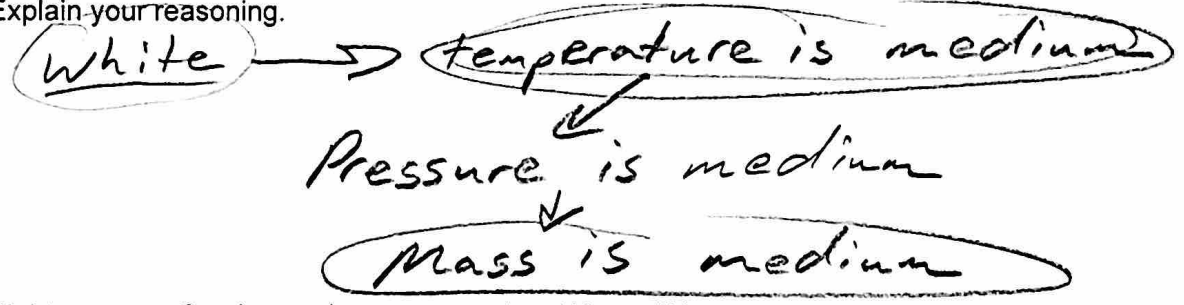 Explain your reasoning.
White → temperature is medium
Pressure is medium
Mass is medium